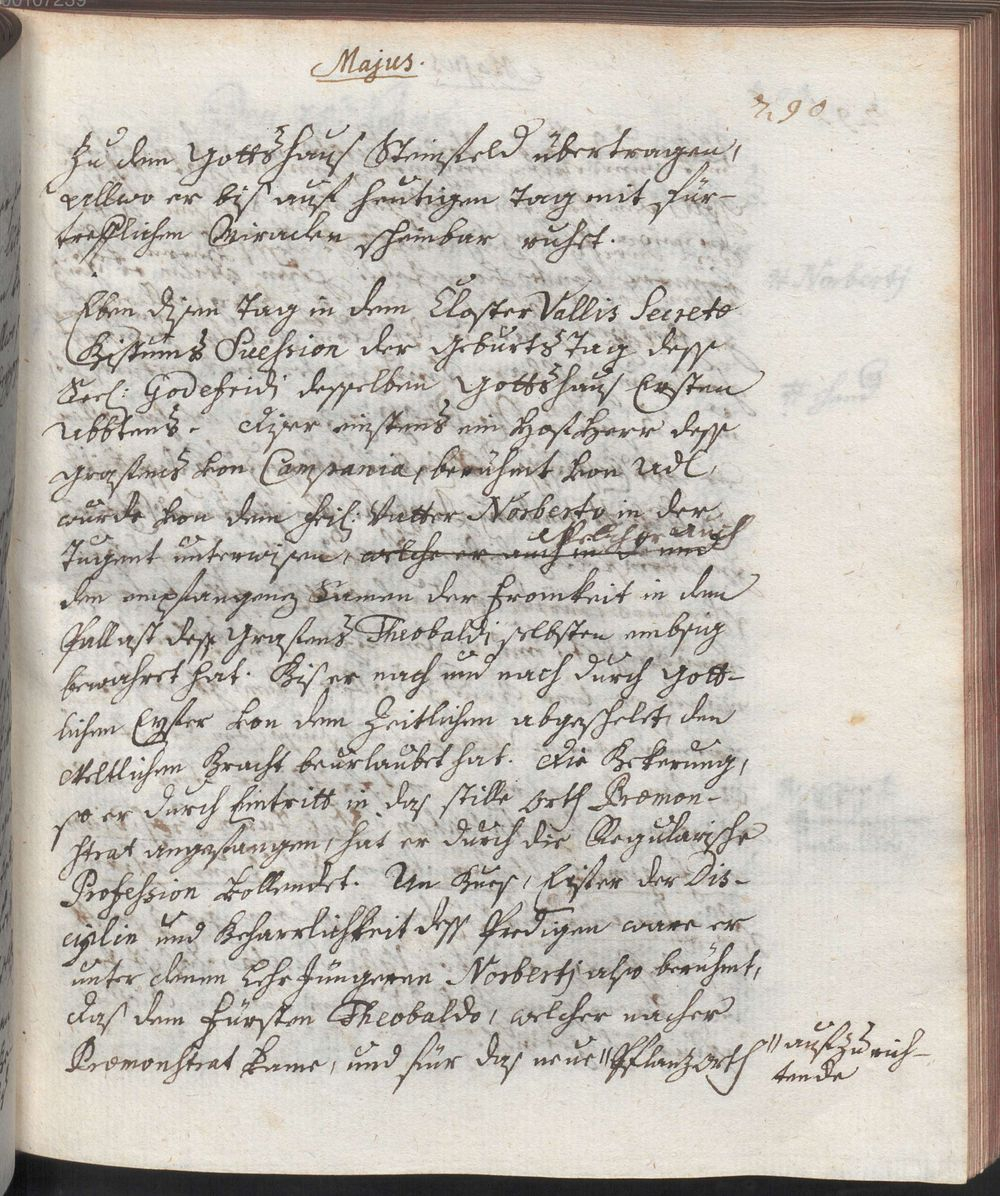 Majus.
290
Zu dem Gottshaus Steinfeld übertragen,
allwo er biß auf heutigen Tag mit für-
trefflichen Miraclen scheinbar ruhet.
Eben disen Tag in dem Closter Vallis Secretæ
Bistums Suession der Geburts Tag dess
Seel: Godefridi desselben Gottshaus Ersten
Abbtens. Diser einstens ein Hofherr dess
Grafens von Campania, berühmt von Adl,
wurde von dem heil: Vatter Norberto in der
Tugent unterwisen, welcher auch
den empfangenen Samen der Fromkeit in dem
Pallast dess Grafens Theobaldi selbsten embsig
bewahret hat. Biß er nach und nach durch Gött-
lichen Eyfer von dem Zeitlichen abgeschelet, den
Weltlichen Bracht beurlaubet hat. Die Bekerung,
so er durch Eintritt in das stille orth Præmon-
strat angefangen, hat er durch die Regularische
Profession vollendet. An Buß, Eifer der Dis-
ciplin und Beharrlichkeit dess Predigen ware er
unter denen Lehr Jüngeren Norbertj also berühmt,
daß dem Fürsten Theobaldo, welcher nacher
Præmonstrat kame, und für das neue || Pflanzorth
|| aufzurich-
tende